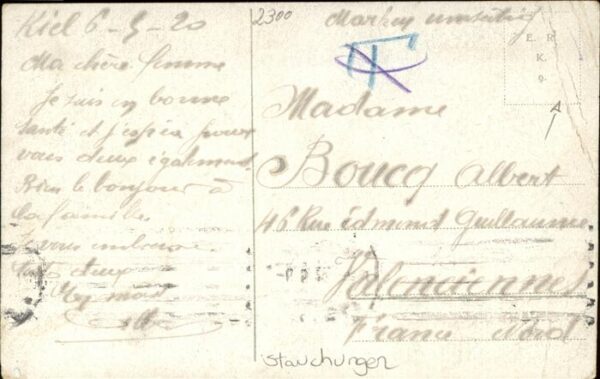 Kiel 6-5-20
Ma chère femme
Je suis en bonne
santé et j'espère pour
vous deux également.
Bien le bonjour à
la famille
Je vous embrasse
tout deux
2300
T
E. R.
K.
9.
A
Madame
Boucq Albert
46 Rue édmond Guillaume
Valenciennes
France Nord
Stauchungen